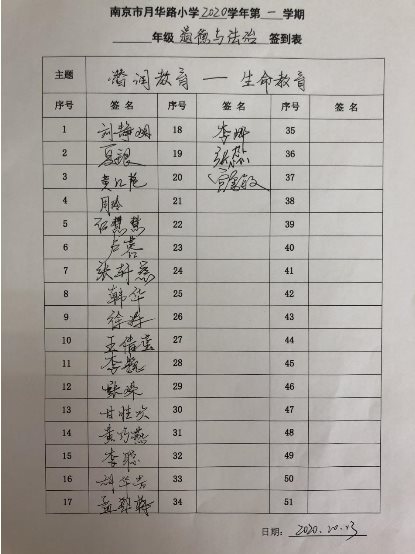 南京市月华路小学2020学年第一学期
年级 道德与法治 签到表
主题 教育 — 生命教育
序号 签 名 序号 签 名 序号 签 名
1 刘静娴 18 李烨 35
2 夏银 19 36
3 黄江艳 20 37
4 周玲 21 38
5 石慧慧 22 39
6 卢蓉 23 40
7 张轩慈 24 41
8 韩华 25 42
9 徐 26 43
10 王倩莹 27 44
11 李凯 28 45
12 29 46
13 甘桂 30 47
14 黄巧燕 31 48
15 李聪 32 49
16 33 50
17 34 51
日期: 2020.10.13